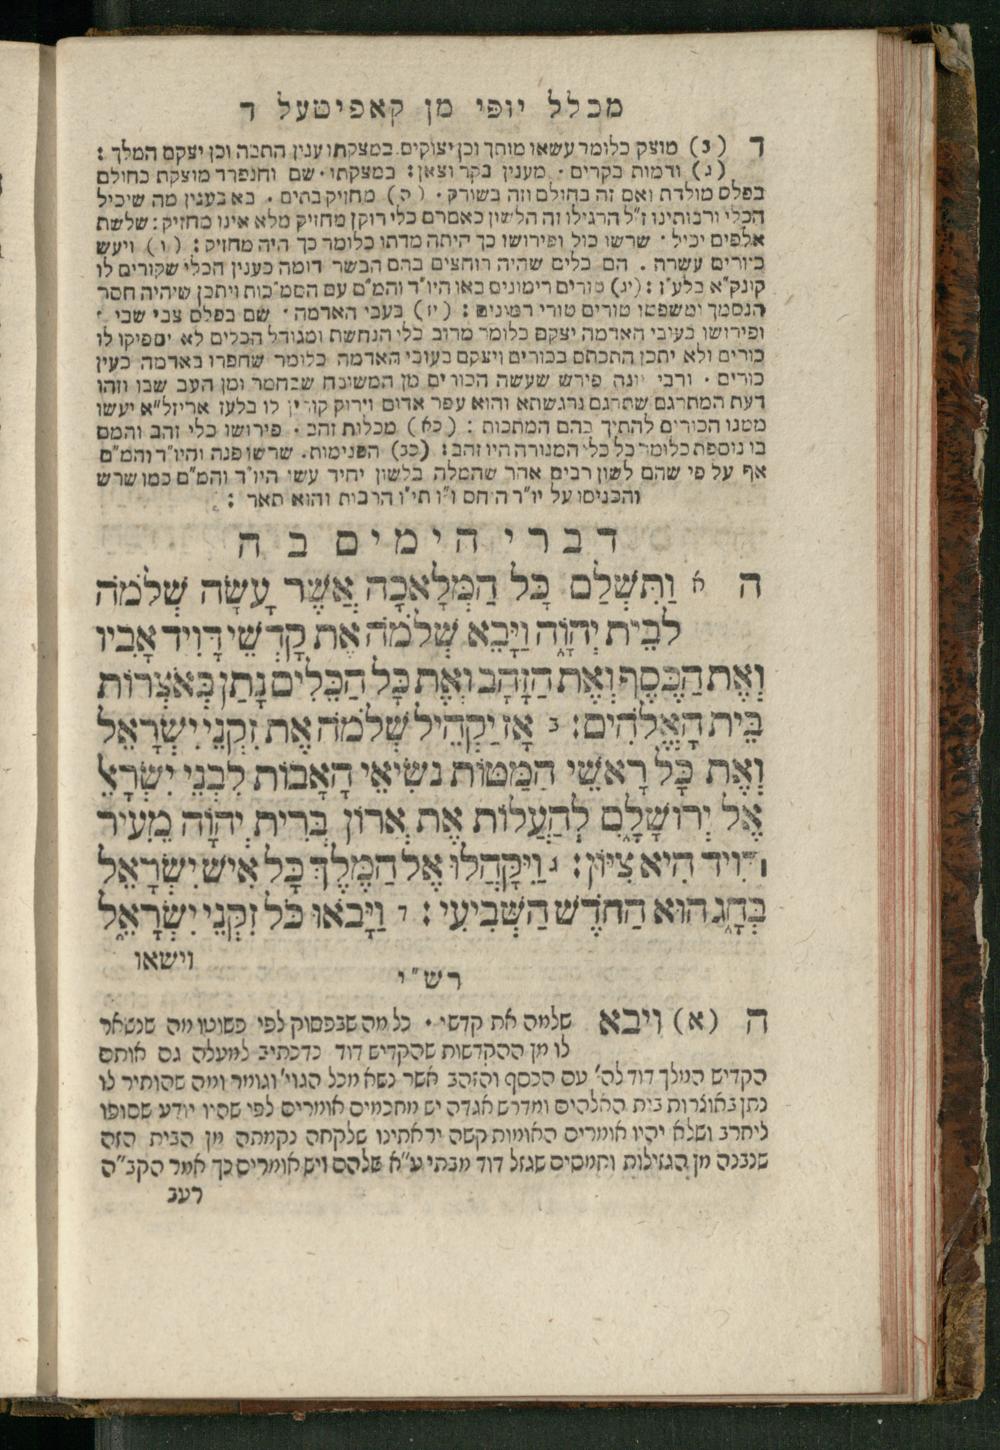 מכלל יופי מן קאפיטעל ד
ד (ב) מוצק כלומר עשאו מותך וכן יצוקים במצקתו ענין התכה וכן יצקם המלך :
(ג) ודמות בקרים · מענין בקר וצאן : במצקתו · שם והנפרד מוצקת כחולם
בפלס מולדת ואם זה בחולם וזה בשורק · (ה) מחזיק בתים . בא בענין מה שיכיל
הכלי ורבותינו ז"ל הרגילו זה הלשון כאמרם כלי דוקן מחזיק מלא אינו מחזיק : שלשת
אלפים יכיל · שרשו כול ופירושו כך היתה מדתו כלומר כך היה מחזיק : (ו) ויעש
כיורים עשרה . הם כלים שהיה רוחצים בהם הבשר דומה כענין הכלי שקורים לו
קונק"א בלע"ז : (יג) טורים רימונים באו היו"ד והמ"ם עם הסמ'כות ויתכן שיהיה חסר
הנסמך ומשפטו טורים טורי רמונים : (יז) בעבי האדמה · שם בפלס צבי שבי ·
ופירושו בעובי האדמה יצקם כלומר מרוב כלי הנחשת ומגודל הכלים לא יספיקו לו
כורים ולא יתכן התכתם בכורים ויצקם בעובי האדמה כלומר שחפרו באדמה כעין
כורים · ורבי יונה פירש שעשה הכורים מן המשובח שבחמר ומן העב שבו וזהו
דעת המתרגם שתרגם גרגשתא והוא עפר אדום וירוק קורין לו בלעז ארזיל"א יעשו
ממנו הכורים להתיך בהם המתכות : (כא) מכלות זהב · פירושו כלי זהב והמם
בו נוספת כלומר כל כלי המנורה היו זהב : (כב) הפנימות . שרשו פנה והיו"ד והמ"ם
אף על פי שהם לשון רבים אחר שהמלה בלשון יחיד עשו היו"ד והמ"ם כמו שרש
והכניסו על יו"ד היחס ו"ו תי"ו הרבות והוא תאר :
דברי הימים ב ה
ה א וַתִּשְׁלַם כָּל הַמְּלָאכָה אֲשֶׁר עָשָׂה שְׁלֹמֹה
לְבֵית יְהוָֹה וַיָּבֵא שְׁלֹמֹה אֶת קָדְשֵׁי דָּוִיד אָבִיו
וְאֶת הַכֶּסֶף וְאֶת הַזָּהָב וְאֶת כָּל הַכֵּלִים נָתַן בְּאֹצְרוֹת
בֵּית הָאֱלֹהִים : ב אָז יַקְהֵיל שְׁלֹמֹה אֶת זִקְנֵי יִשְׂרָאֵל
וְאֶת כָּל רָאשֵׁי הַמַּטּוֹת נְשִׂיאֵי הָאָבוֹת לִבְנֵי יִשְׂרָאֵ
אֶל יְרוּשָׁלִָם לְהַעֲלוֹת אֶת אֲרוֹן בְּרִית יְהוָֹה מֵעִיר
דָּוִיד הִיא צִיּוֹן : ג וַיִּקָּהֲלוּ אֶל הַמֶּלֶךְ כָּל אִישׁ יִשְׂרָאֵל
בֶּחָג הוּא הַחֹדֶשׁ הַשְּׁבִיעִי : ד וַיָּבֹאוּ כֹּל זִקְנֵי יִשְׂרָאֵל
וישאו
רש"י
ה (א) ויבא שלמה את קדשי · כל מה שבפסוק לפי פשוטו מה שנשאר
לו מן ההקדשות שהקדיש דוד כדכתיב למעלה גם אותם
הקדיש המלך דוד לה' עם הכסף והזהב אשר נשא מכל הגוי' וגומר ומה שהותיר לו
נתן באוצרות בית האלהים ומדרש אגדה יש מחכמים אומרים לפי שהיו יודע שסופו
ליחרב ושלא יהיו אומרים האומות קשה יראתינו שלקחה נקמתה מן הבית הזה
שנבנה מן הגזילות וחמסים שגזל דוד מבתי ע"א שלהם ויש אומרים כך אמר הקב"ה
רעב